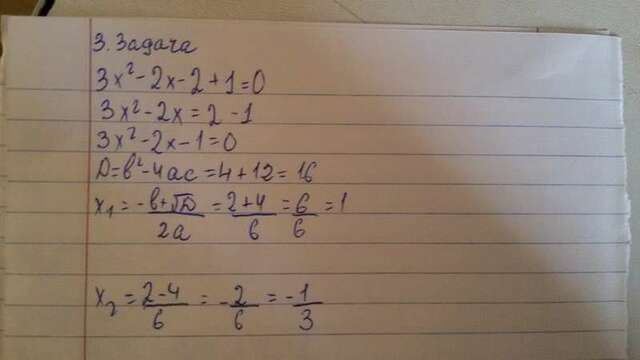 3. Задача
3x²-2x-2+1=0
3x²-2x=2-1
3x²-2x-1=0
D=b²-4ac=4+12=16
x₁=-b+√D/2a=2+4/6=6/6=1
x₂=2-4/6=-2/6=-1/3